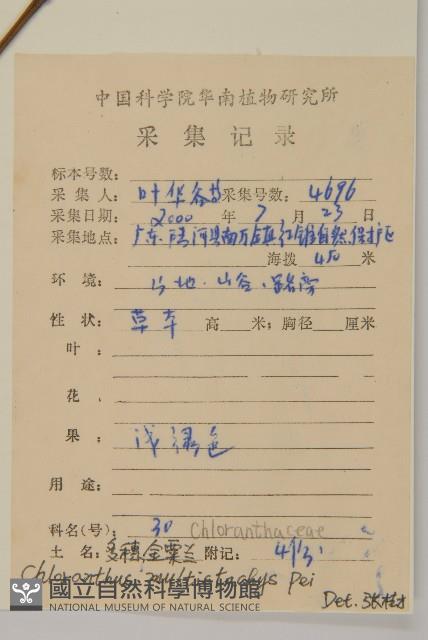 中国科学院华南植物研究所
采集记录
标本号数:
采集人: 叶华谷 采集号数: 4696
采集日期: 2000 年 7 月 23 日
采集地点: 广东 陆河县南万镇红锥自然保护区
海拨 450 米
环境: 山地·山谷·路旁
性状: 草本 高 米; 胸径 厘米
叶:
花
果: 浅绿色
用途:
科名(号): 30 Chloranthaceae
土名: 多穗金粟兰 附记:
Chloranthus multistachys Pei
Det. 张
國立自然科學博物館
NATIONAL MUSEUM OF NATURAL SCIENCE